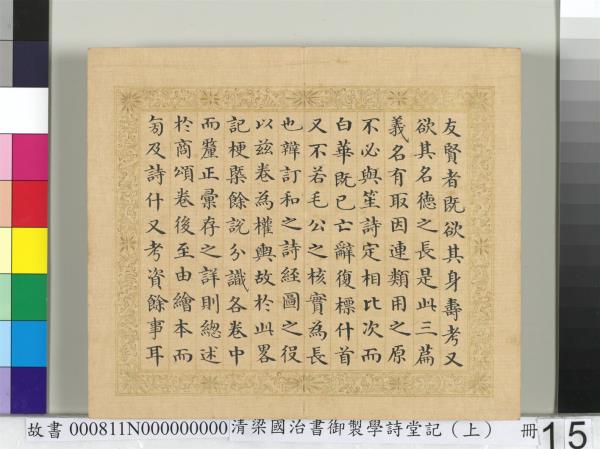 友賢者既欲其身壽考又
欲其名德之長是此三篇
義名有取因連類用之原
不必與笙詩定相比次而
白華既已亡辭復標什首
又不若毛公之核實為長
也辯訂和之詩經圖之役
以茲卷為權輿故於此畧
記梗槩餘說分識各卷中
而釐正彙存之詳則總述
於商頌卷後至由繪本而
旁及詩什又考資餘事耳
故書 000811N000000000 清梁國治書御製學詩堂記(上) 冊 15